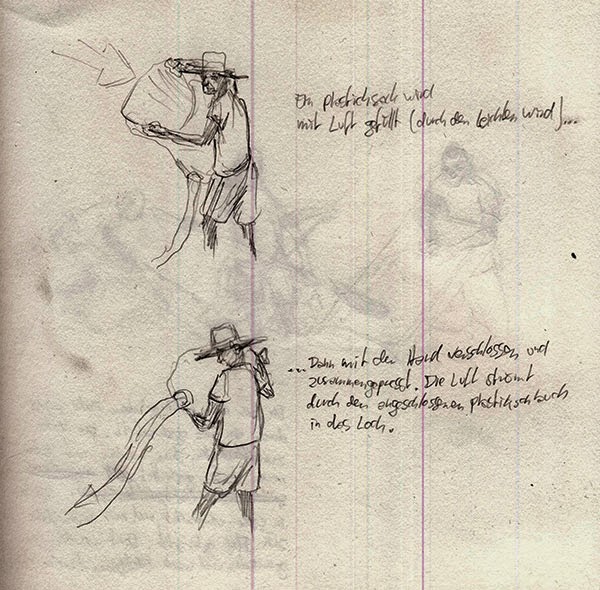 Ein Plasticksack wird
mit Luft gefüllt (durch den leichten Wind)...
... Dann mit der Hand verschlossen und
zusammengepresst. Die Luft strömt
durch den angeschlossenen Plastickschlauch
in das Loch.